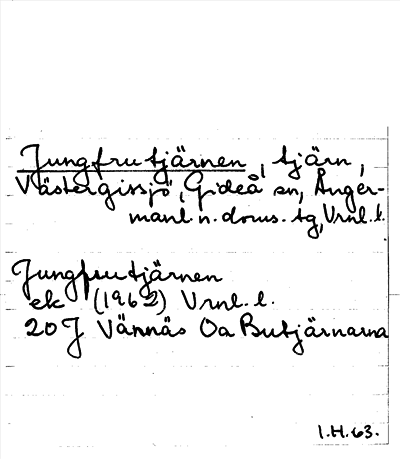 Jungfrutjärnen, tjärn,
Västergissjö, Gideå sn, Ånger-
manl. n. doms. tg, Vrnl. l.
Jungfrutjärnen
ek (1962) Vrnl. l.
20 J Vännäs Oa Butjärnarna
I.H.63.